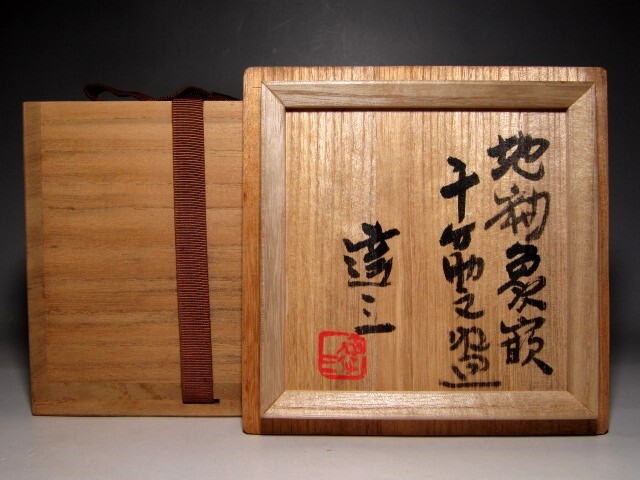 地釉象嵌
千筋文盌
達三